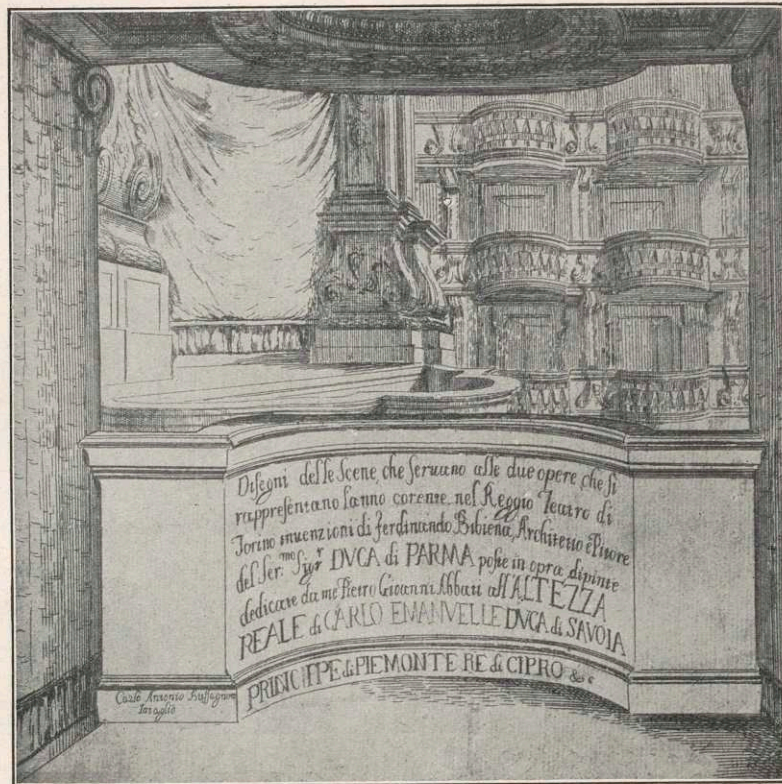 Disegni delle Scene, che seruano alle due opere, che si
rappresentano lanno corente, nel Reggio Teatro di
Torino inuenzioni di Ferdinando Bibiena, Architetto è Pitore
del Ser.mo Sigr. DVCA di PARMA poste in opra, dipinte
dedicate da me Pietro Giouanni Abbati all'ALTEZZA
REALE di CARLO EMANVELLE DVCA di SAVOIA
PRINCIPE di PIEMONTE RE di CIPRO &c
Carlo Antonio Buffagnoti
Intaglio